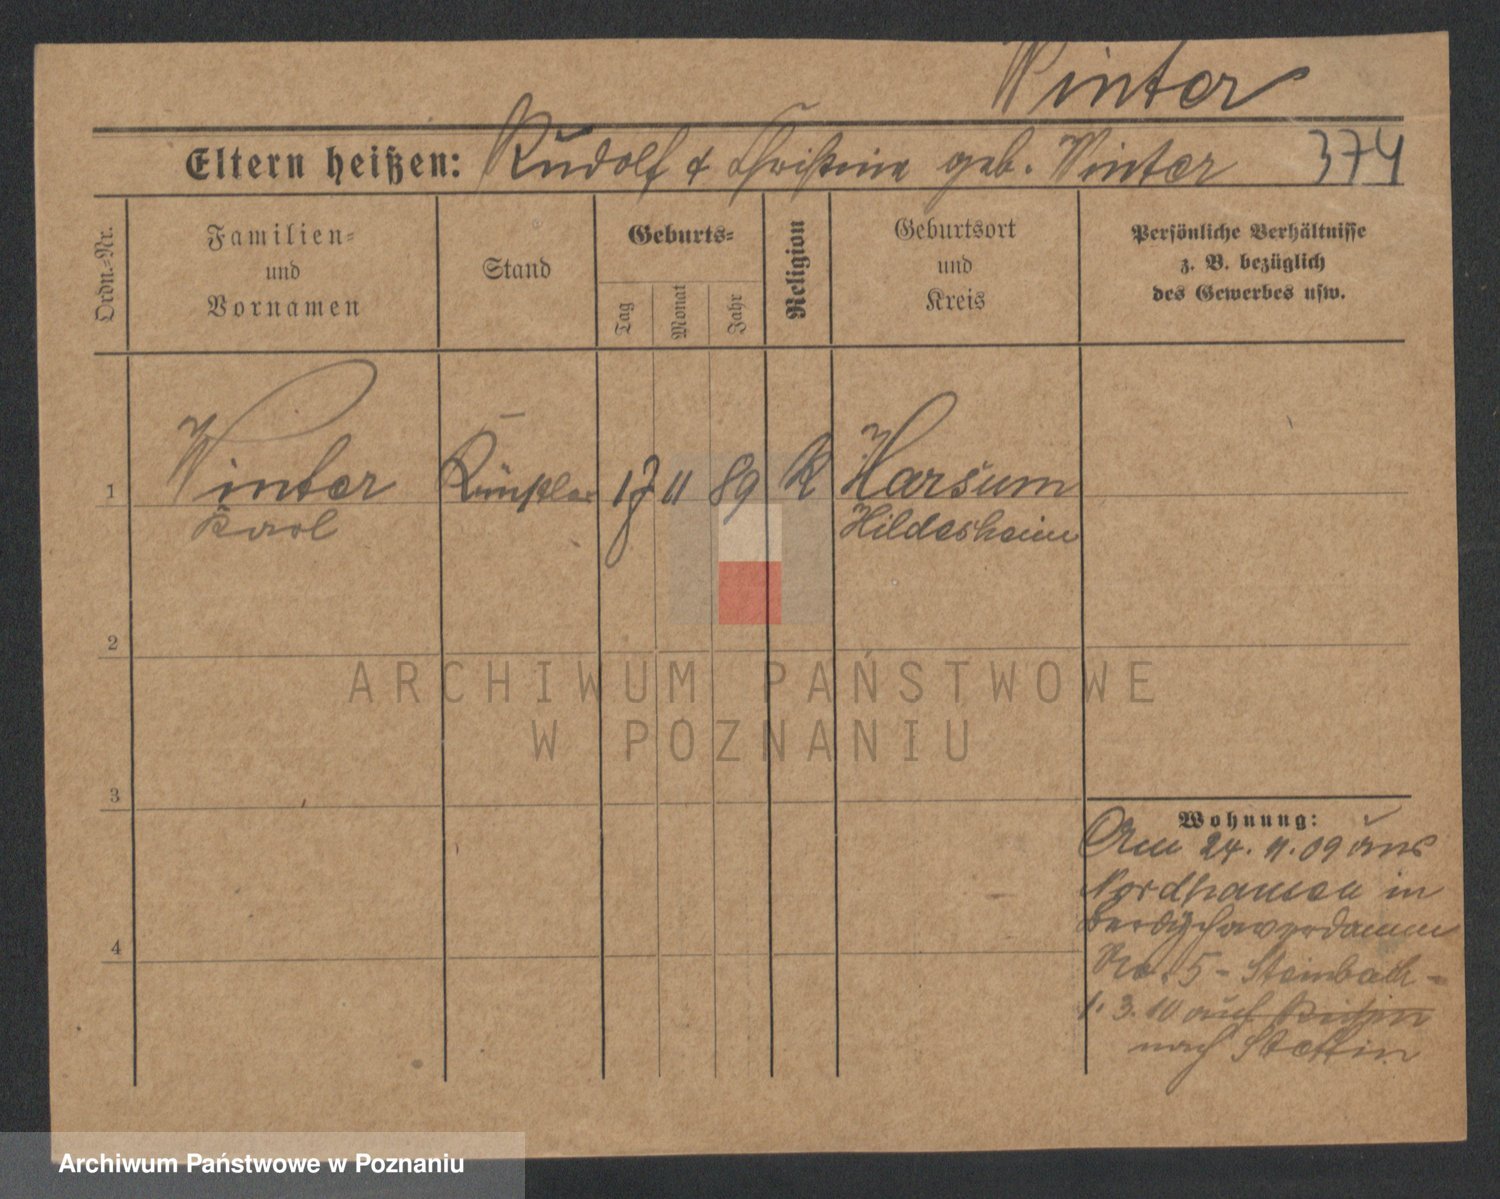 Winter
Eltern heißen: Rudolf & Christine geb. Winter 374
Ordn.-Nr.
Familien-
und
Vornamen
Stand
Geburts-
Tag
Monat
Jahr
Religion
Geburtsort
und
Kreis
Persönliche Verhältnisse
z. B. bezüglich
des Gewerbes usw.
1 Winter Künstler 17 11 89 K Harsum
Karl Hildesheim
2
3
4
Wohnung:
Am 24. 11. 09 aus
Nordhausen in
No. 5 - Steinbach -
1. 3. 10 auf
nach Stettin
ARCHIWUM PAŃSTWOWE
W POZNANIU
Archiwum Państwowe w Poznaniu